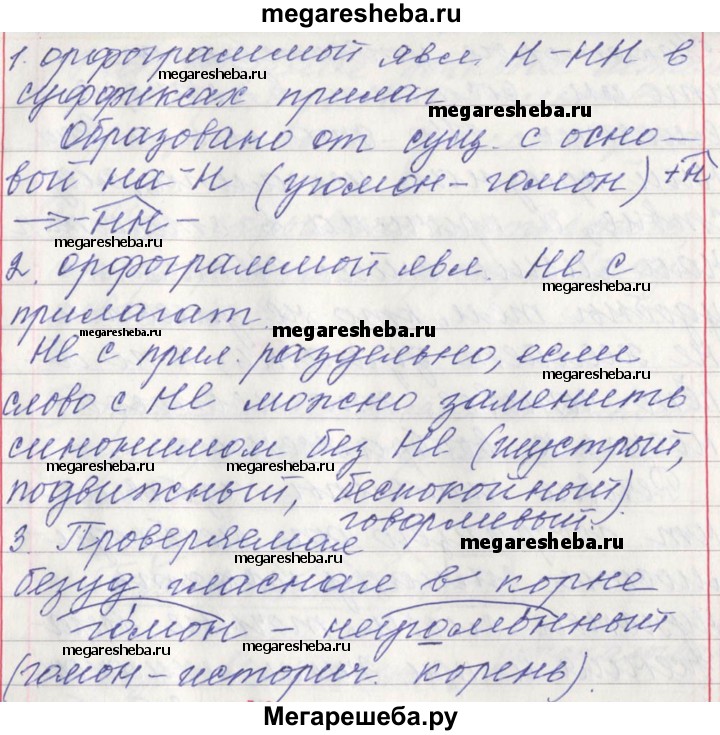 megaresheba.ru
1. орфограммой явл. Н-НН в
megaresheba.ru
суффиксах прилаг.
megaresheba.ru
Образовано от сущ. с осно-
вой на -Н (угомон-гомон) + Н
→ -НН-
megaresheba.ru
2. орфограммой явл. НЕ с
megaresheba.ru
прилагат.
megaresheba.ru
НЕ с прил. раздельно, если
megaresheba.ru
слово с НЕ можно заменить
синонимом без НЕ (шустрый,
megaresheba.ru megaresheba.ru
подвижный, беспокойный)
говорливый.
3. Проверяемая
megaresheba.ru
megaresheba.ru
безуд. гласная в корне
гомон - неугомонный
megaresheba.ru megaresheba.ru
(гомон-историч. корень).
Мегарешеба.ру